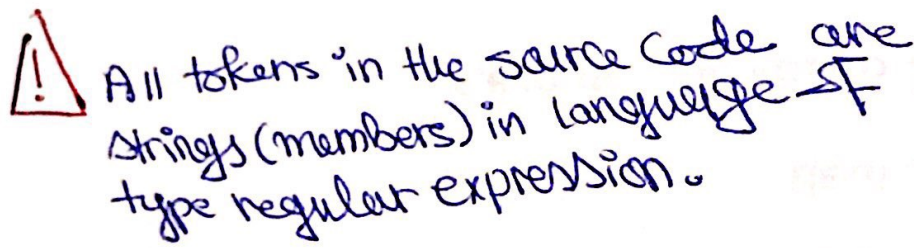 ! All tokens in the source code are
strings (members) in language of
type regular expression.